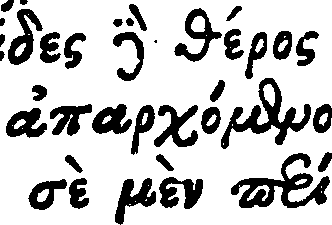 δες ϗ̀ θέρος
ἀπαρχόμενο
σὲ μὲν